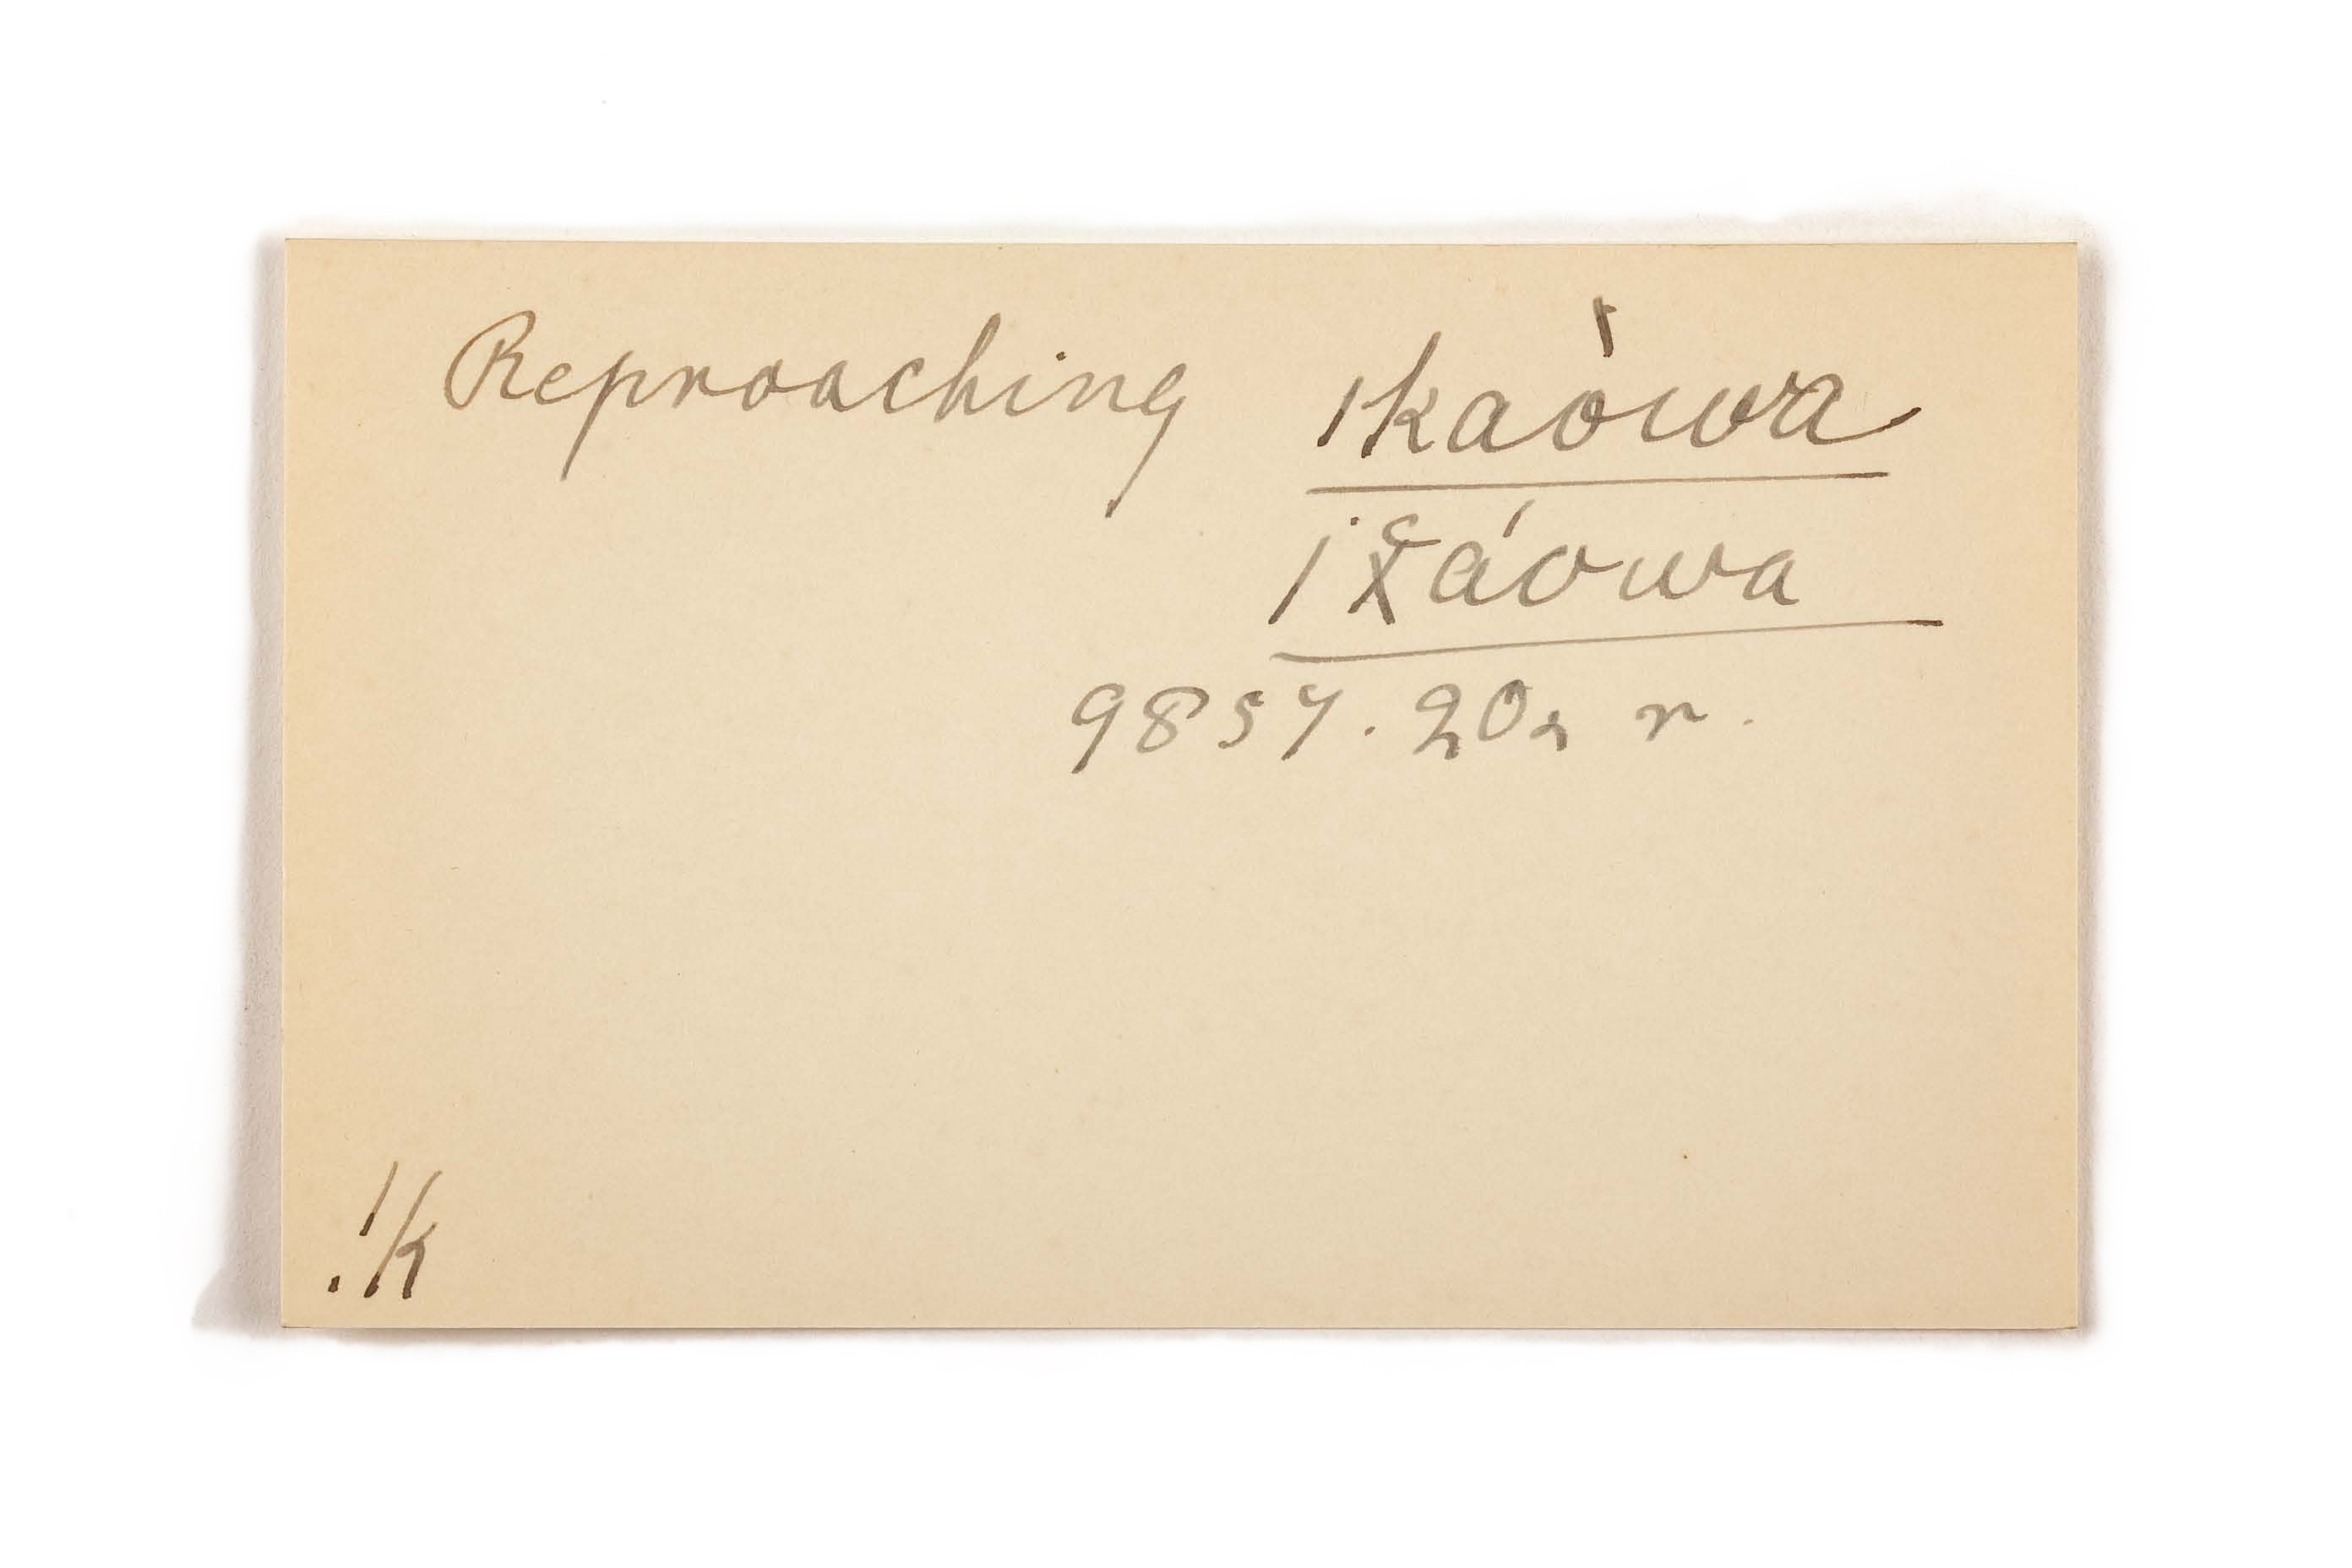 Reproaching ikaòwa
iẋ̔áowa
9857.20a r.
.ik